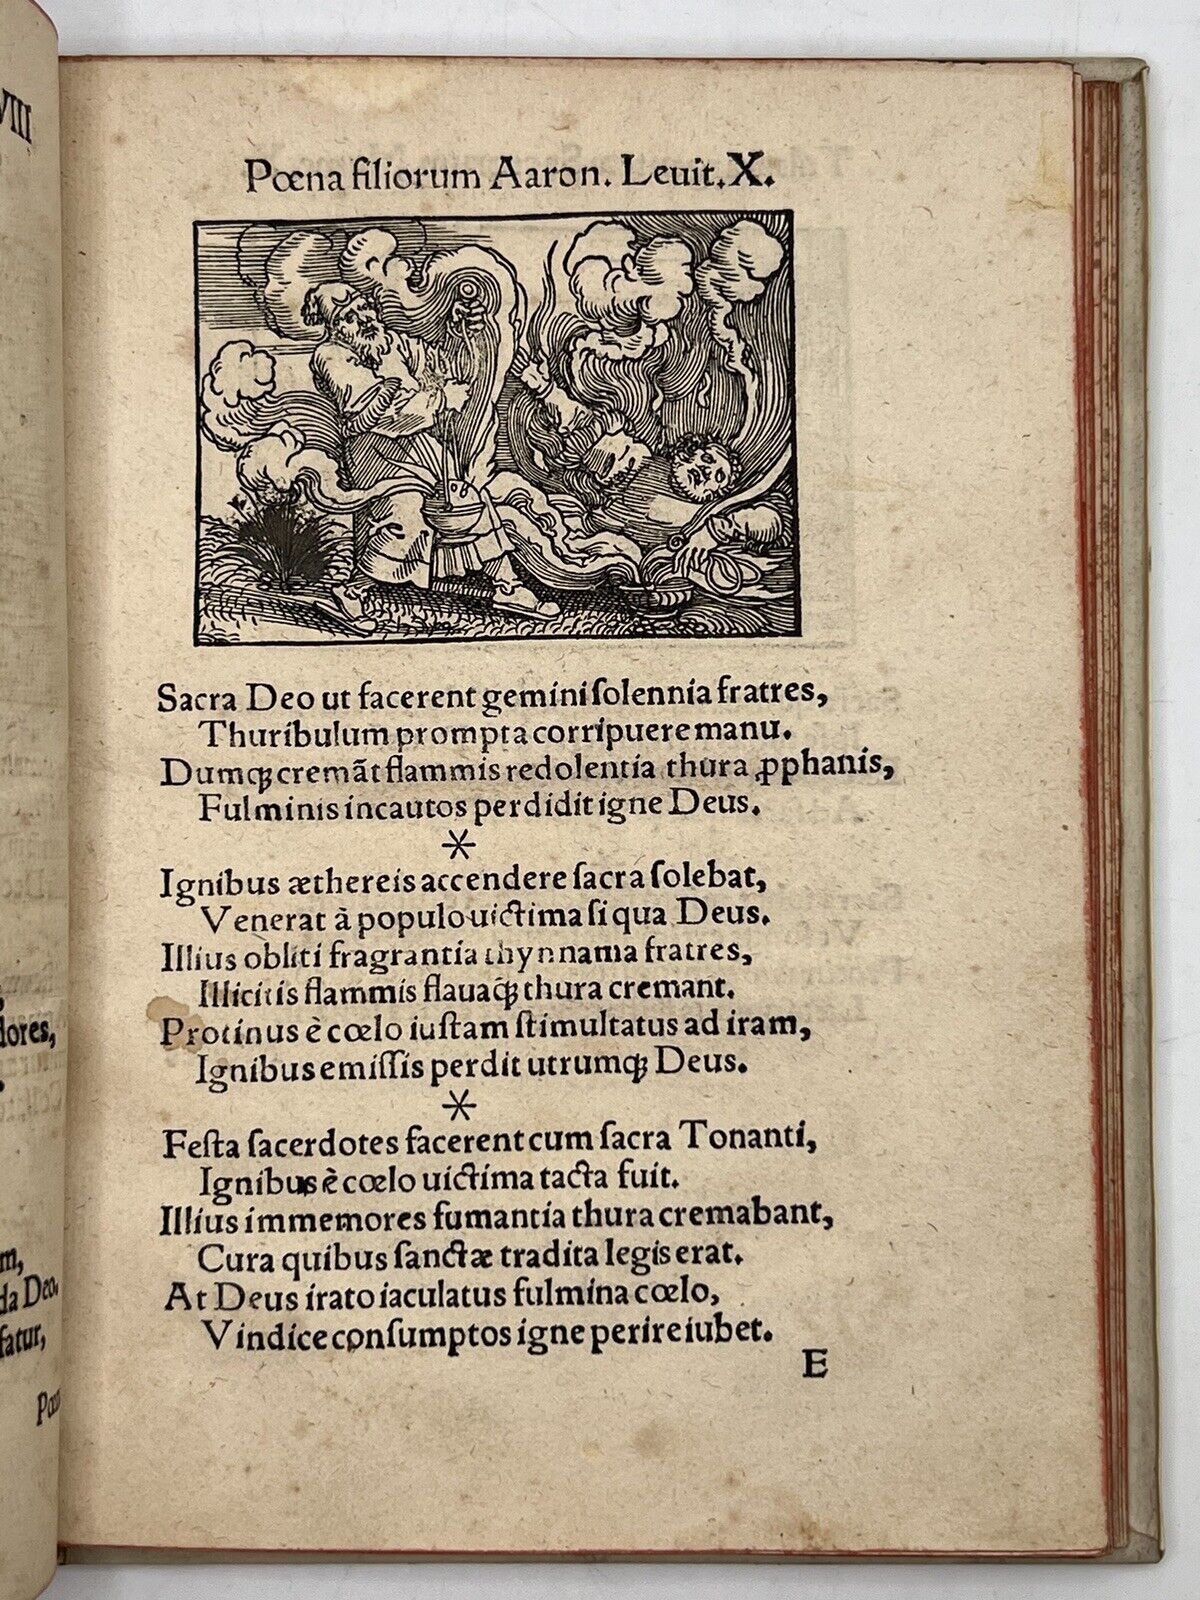 VIII
dores,
m,
da Deo.
fatur,
Pœn
Pœna filiorum Aaron. Leuit. X.
Sacra Deo ut facerent gemini ſolennia fratres,
Thuribulum prompta corripuere manu.
Dumqꝫ cremãt flammis redolentia thura ꝓphanis,
Fulminis incautos perdidit igne Deus.
*
Ignibus æthereis accendere ſacra ſolebat,
Venerat à populo uictima ſi qua Deus.
Illius obliti fragrantia thynnama fratres,
Illicitis flammis flauaqꝫ thura cremant.
Protinus è cœlo iuſtam ſtimultatus ad iram,
Ignibus emiſſis perdit utrumqꝫ Deus.
*
Feſta ſacerdotes facerent cum ſacra Tonanti,
Ignibus è cœlo uictima tacta fuit.
Illius immemores fumantia thura cremabant,
Cura quibus ſanctæ tradita legis erat.
At Deus irato iaculatus fulmina cœlo,
Vindice conſumptos igne perire iubet.
E